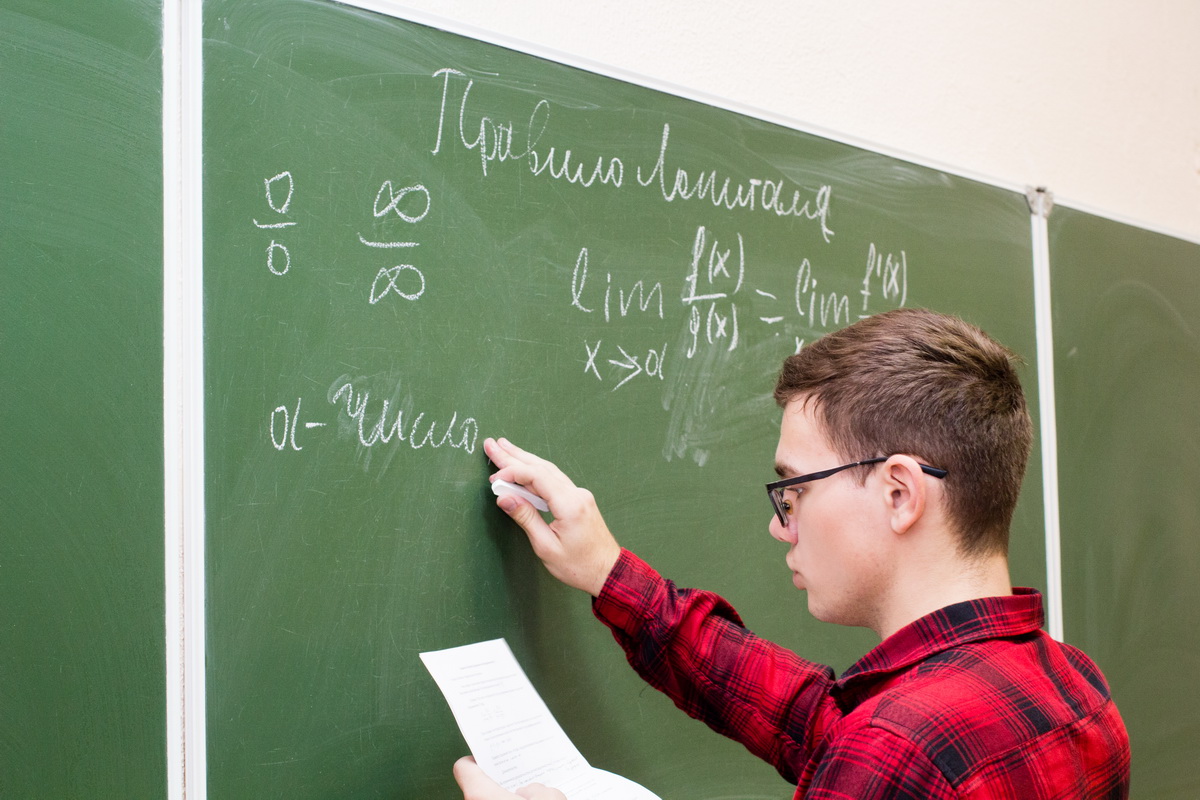 Правило Лопиталя
0/0 ∞/∞
lim f(x)/g(x) = lim f'(x)
x→a x
a - число